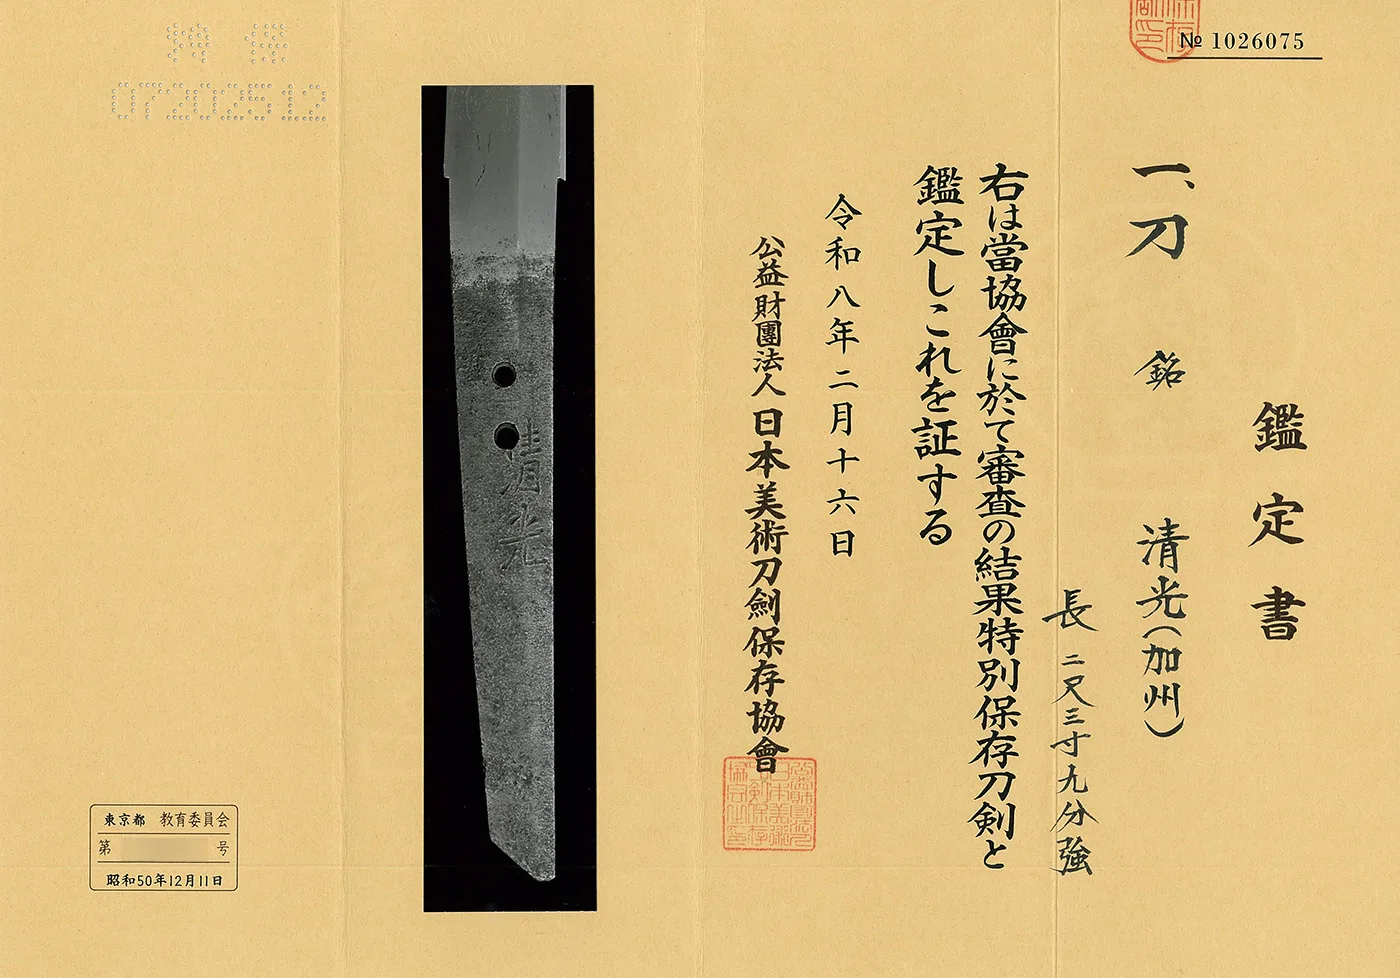 № 1026075
鑑定書
一、刀 銘 清光(加州)
長 二尺三寸九分強
右は當協會に於て審査の結果特別保存刀剣と
鑑定しこれを証する
令和八年二月十六日
公益財團法人 日本美術刀劍保存協會
清光
特 保
0720202512
東京都 教育委員会
第 号
昭和50年12月11日